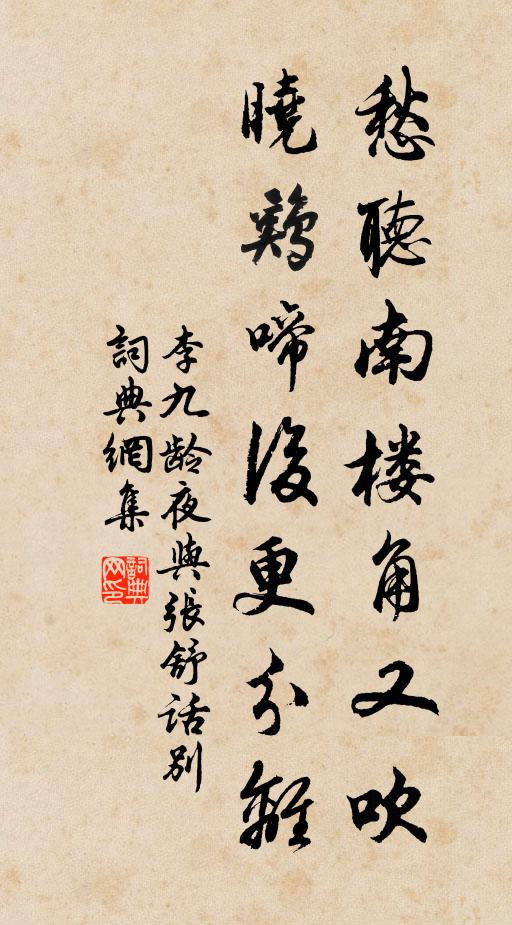 愁聽南楼角又吹
曉鷄啼後更分離
李九龄夜與張舒话别
詞典網集
詞典网印